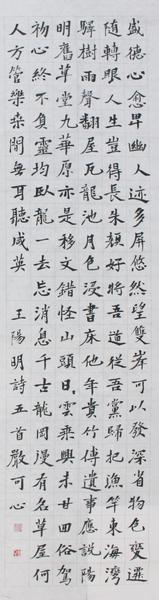 盛德心愈卑幽人迹多屏悠然望雙峯可以發深省物色變遷
隨轉眼人生豈得長朱顏好將吾道從吾黨歸把漁竿東海灣
驛樹雨聲翻屋瓦龍池月色浸書床他年貴竹傳遺事應說陽
明舊草堂九華原亦是移文錯怪山頭日〻雲乘興未甘回俗駕
初心終不負靈均臥龍一去忘消息千古龍岡漫有名草屋何
人方管樂桑間無耳聽咸英 王陽明詩五首 嚴可心